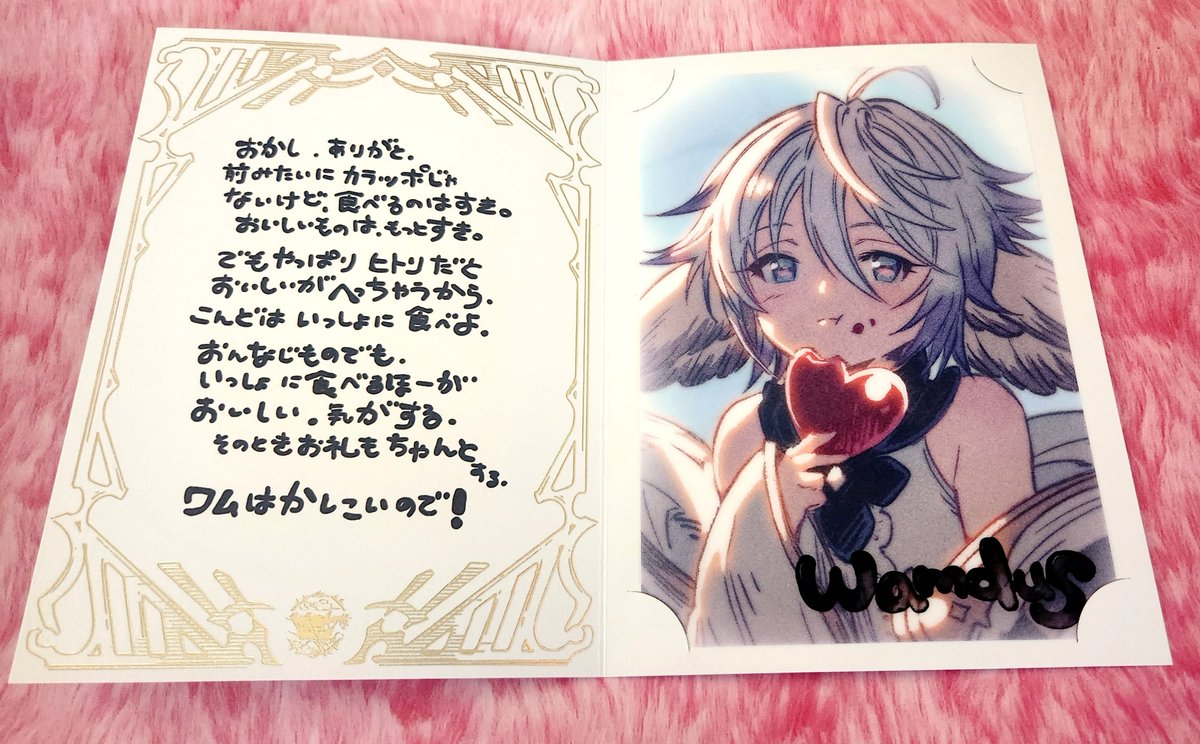 おかし、ありがと、
前みたいに カラッポじゃ
ないけど、食べるのはすき。
おいしいものは、もっとすき。
でもやっぱり ヒトリだと
おいしいが へっちゃうから、
こんどは いっしょに 食べよ。
おんなじものでも、
いっしょに食べるほーが
おいしい。気がする。
そのときお礼もちゃんと
する。
ワムはかしこいので!
Wamdus